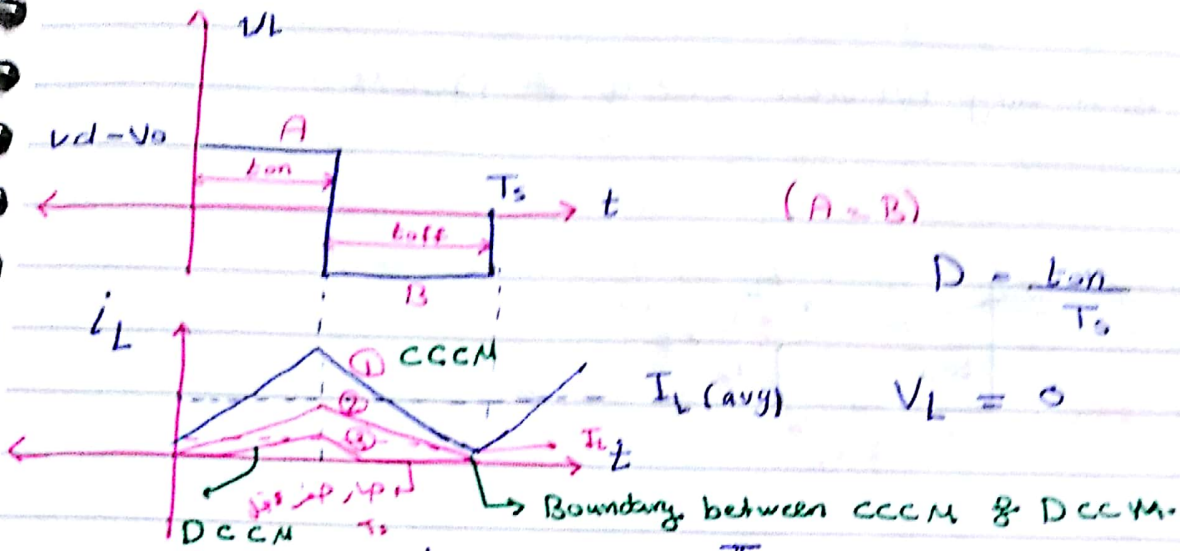 VL
Vd-Vo
A
ton
Ts
t
(A = B)
toff
B
D = ton / Ts
iL
① CCCM
②
③
IL (avg)
VL = 0
IL
t
صفر قبل
Ts
DCCM
Boundary between CCCM & DCCM.